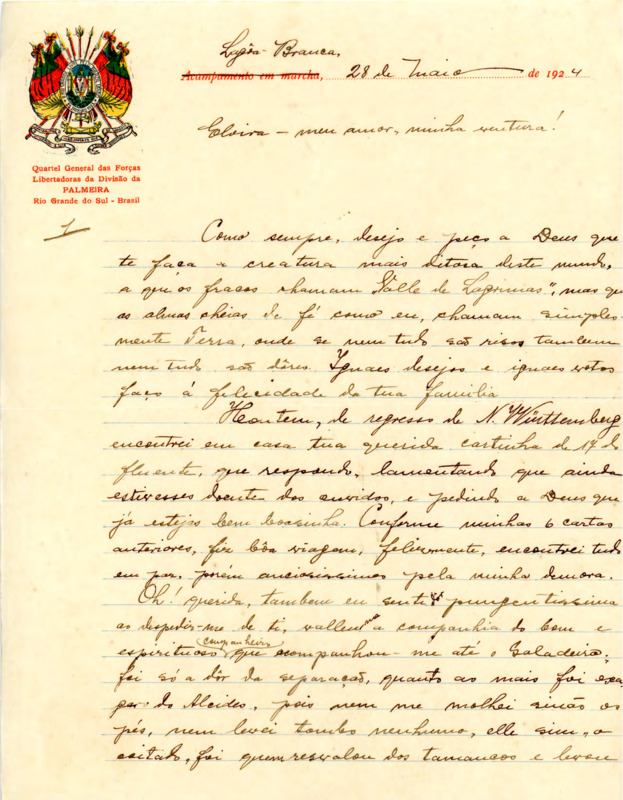 Lagôa-Branca,
Acampamento em marcha, 28 de Maio de 1924
Elvira - meu amor, minha ventura!
Quartel General das Forças
Libertadoras da Divisão da
PALMEIRA
Rio Grande do Sul - Brasil
1
Como sempre, desejo e peço a Deus que
te faça a creatura mais ditosa deste mundo,
a que os fracos chamam "Valle de Lagrimas", mas que
as almas cheias de fé como eu, chamam simples-
mente Terra, onde se nem tudo são risos tambem
nem tudo são dôres. Iguaes desejos e iguaes votos
faço á felicidade da tua familia
Hontem, de regresso de N. Württemberg
encontrei em casa tua querida cartinha de 17 do
fluente, que respondo, lamentando que ainda
estivesses doente dos ouvidos, e pedindo a Deus que
já estejas bem boasinha. Conforme minhas 6 cartas
anteriores, fiz bôa viagem, felizmente, encontrei tudo
em paz, porém anciosissimos pela minha demora.
Oh! querida, tambem eu senti pungentissima
ao despedir-me de ti, valleu-me a companhia do bom e
espirituoso companheiro que acompanhou-me até o Saladeiro;
foi só a dôr da separação, quanto ao mais foi exa-
gero do Alcides, pois nem me molhei sinão os
pés, nem levei tombo nenhum, elle sim, o
coitado, foi quem reswalou dos tamancos e levou